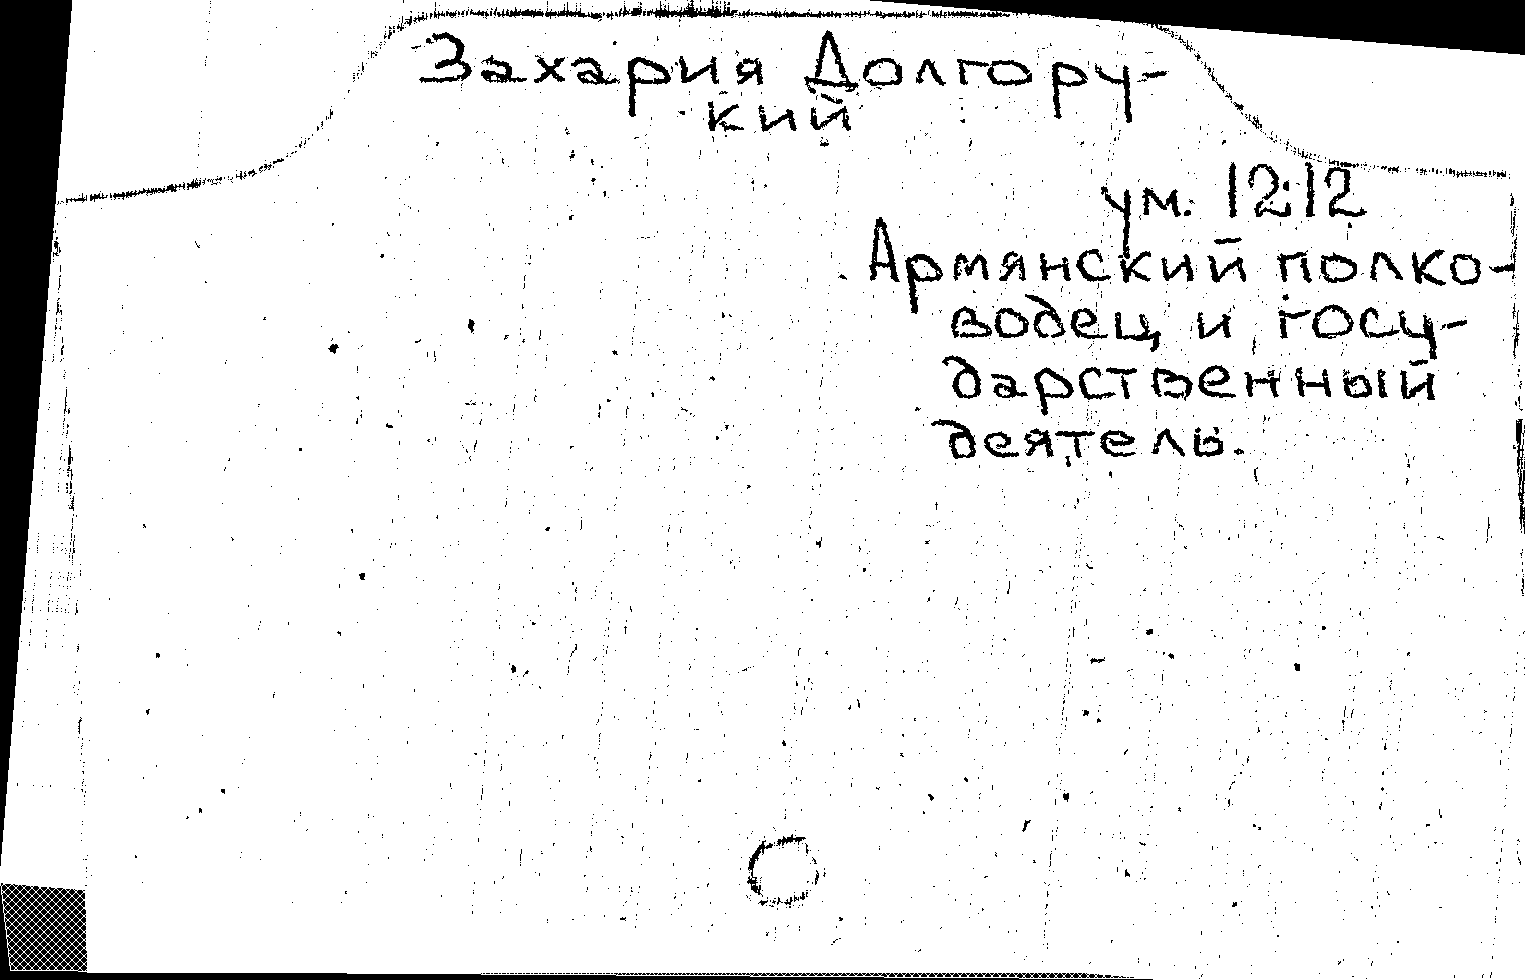 Захария Долгору-
кий
ум. 1212
Армянский полко-
водец и госу-
дарственный
деятель.